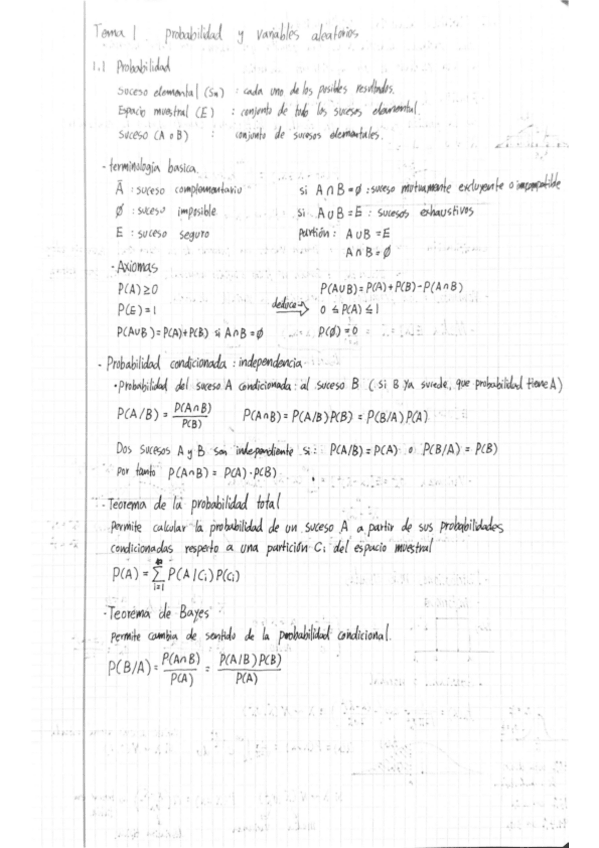 Tema 1 probabilidad y variables aleatorios
1.1 Probabilidad
Suceso elemental (Sn) : cada uno de los posibles resultados.
Espacio muestral (E) : conjunto de todo los sucesos elemental.
Suceso (A o B) : conjunto de sucesos elementales.
- terminologia basica
Ā : suceso complementario
si A∩B=∅ : suceso mutuamente excluyente o incompatible
∅ : suceso imposible
si A∪B=E : sucesos exhaustivos
E : suceso seguro
partión : A∪B=E
A∩B=∅
- Axiomas
P(A)≥0
P(A∪B)=P(A)+P(B)-P(A∩B)
P(E)=1
deduce
0≤P(A)≤1
P(A∪B)=P(A)+P(B) si A∩B=∅
P(∅)=0
- Probabilidad condicionada : independencia
• Probabilidad del suceso A condicionada : al suceso B (si B ya sucede, que probabilidad tiene A)
P(A/B) = P(A∩B) / P(B) P(A∩B) = P(A/B)P(B) = P(B/A)P(A)
Dos sucesos A y B son independiente si : P(A/B)=P(A) o P(B/A)=P(B)
por tanto P(A∩B) = P(A)·P(B)
- Teorema de la probabilidad total
Permite calcular la probabilidad de un suceso A a partir de sus probabilidades
condicionadas respecto a una partición Ci del espacio muestral
P(A) = Σ i=1 P(A/Ci)P(Ci)
- Teorema de Bayes
Permite cambia de sentido de la probabilidad condicional.
P(B/A) = P(A∩B) / P(A) = P(A/B)P(B) / P(A)